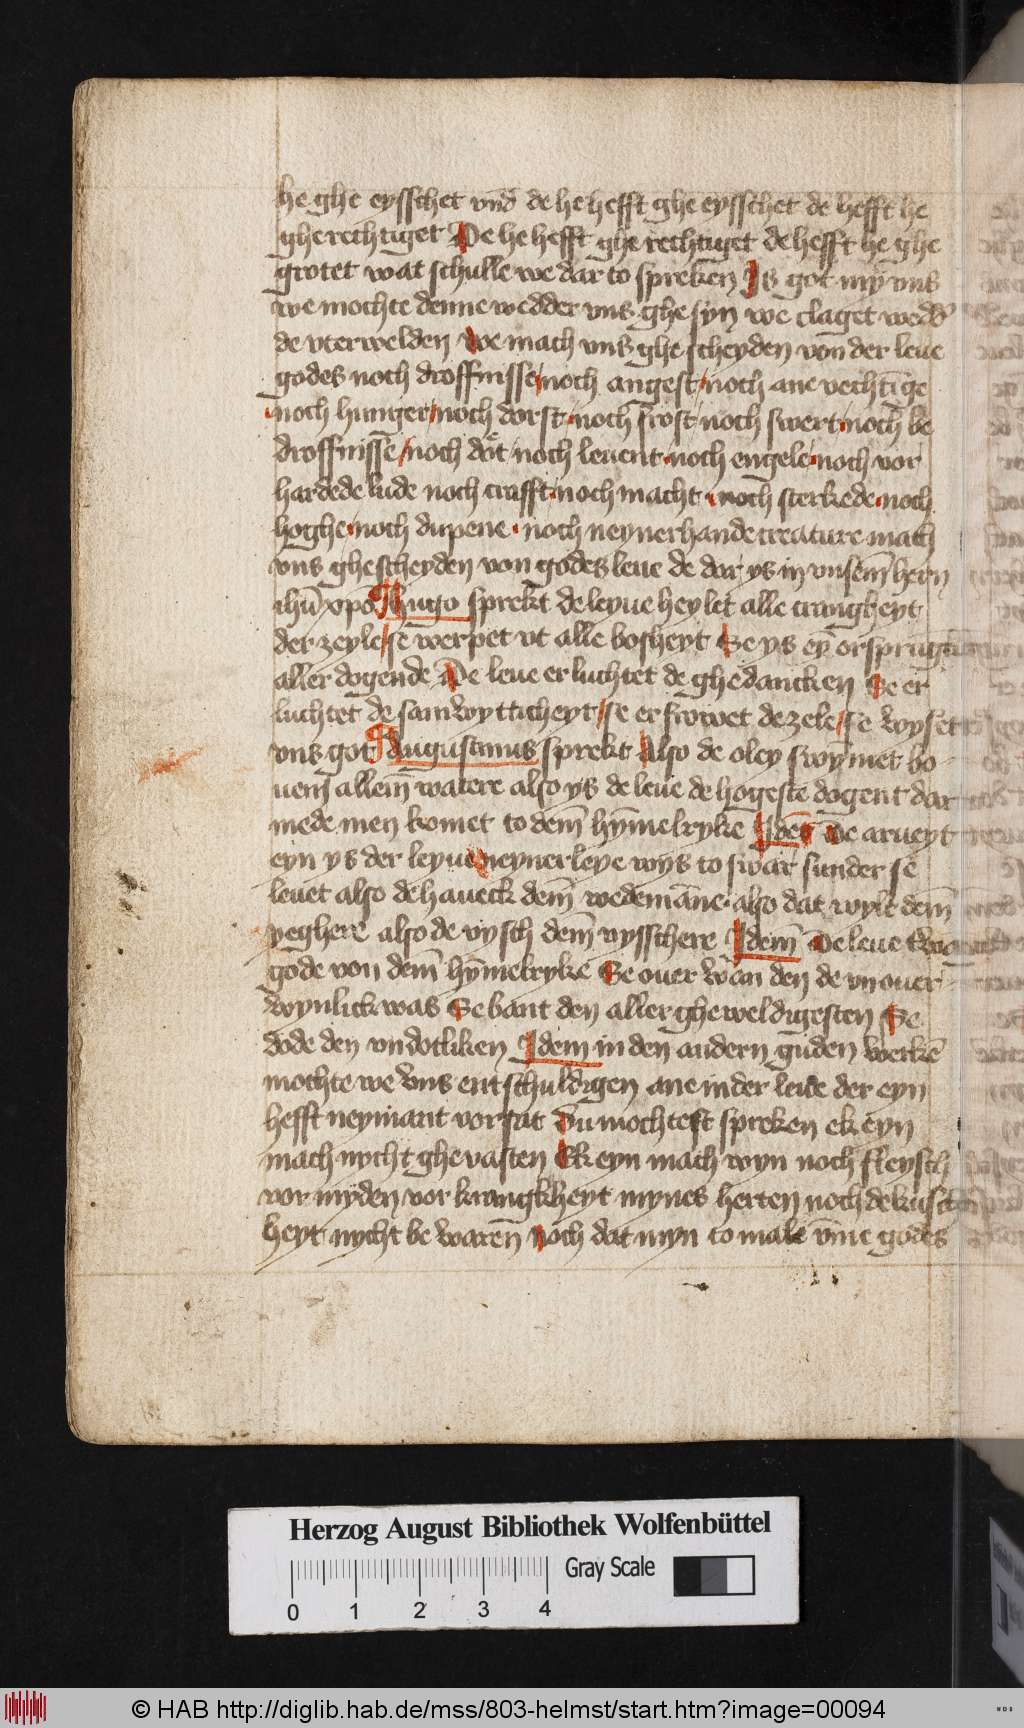 he ghe eysschet vnd̄ de he hefft ghe eysschet de hefft he
gherechtiget De he hefft ghe rechtiget de hefft he ghe
grotet wat schulle we dar to spreken Is got mȳ vns
we mochte denne wedder vns ghe syn we claget wedd̄
de vterwelden we mach vns ghe scheyden von der leue
godes noch droffnisse noch angest noch ane vechtīge
noch hunger noch dorst noch frost noch swert noch be
droffnisse noch dot noch leuent noch engele noch vor
hardede lude noch crafft noch macht noch sterkede noch
hoghe noch dupene noch neynerhande creature mach
vns ghescheyden von godes leue de dar ys in vnsem̄ hern
ihū xpō Hugo sprekt de leyue heylet alle crangheyt
der zeyle se werpet vt alle bosheyt Se ys eȳ orsprūg
aller dogende De leue er luchtet de ghedancken Se er
luchtet de samwytticheyt se er frowet de zele se wyset
vns got Augustinus sprekt Also de oley swȳmet bo
uen allem̄ watere also ys de leue de hogeste dogent dar
mede men komet to dem̄ hȳmelryke Idē De arueyt
eyn ys der leyue neynerleye wys to swar sunder se
leuet also de haueck dem̄ wedemāne also dat wylt dem̄
yeghere also de vysch dem̄ vysschere Idem̄ De leue
gode von dem̄ hȳmelryke Se ouer wan den de vn ouer
wynlick was Se bant den aller gheweldigesten Se
dode den vndotliken Idem in den andern guden werkē
mochte we vns entschuldigen ane in der leue der eyn
hefft neymant vor sat Du mochtest spreken ek eyn
mach nycht ghe vasten Ek eyn mach wyn noch fleysch
vor myden vor krangkheyt mynes herten noch de kusch
heyt nycht be waren noch dat myn to male vm̄e godes
Herzog August Bibliothek Wolfenbüttel
Gray Scale
0 1 2 3 4
© HAB http://diglib.hab.de/mss/803-helmst/start.htm?image=00094